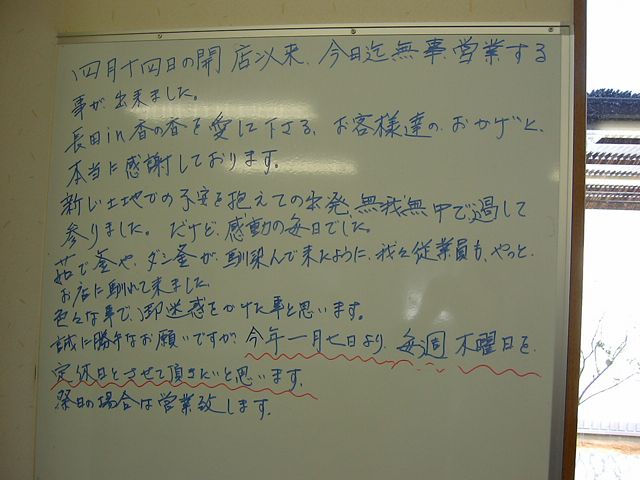 四月十四日の開店以来、今日迄無事、営業する
事が、出来ました。
長田in香の香を愛して下さる、お客様達の、おかげと、
本当に感謝しております。
新しい土地での不安を抱えての出発、無我無中で過して
参りました。だけど、感動の毎日でした。
茹で釜や、ダシ釜が、馴染んで来たように、我々従業員も、やっと、
お店に馴れて来ました。
色々な事で、御迷惑をかけた事と思います。
誠に勝手なお願いですが、今年一月七日より、毎週 木曜日を、
定休日とさせて頂きたいと思います。
祭日の場合は営業致します。